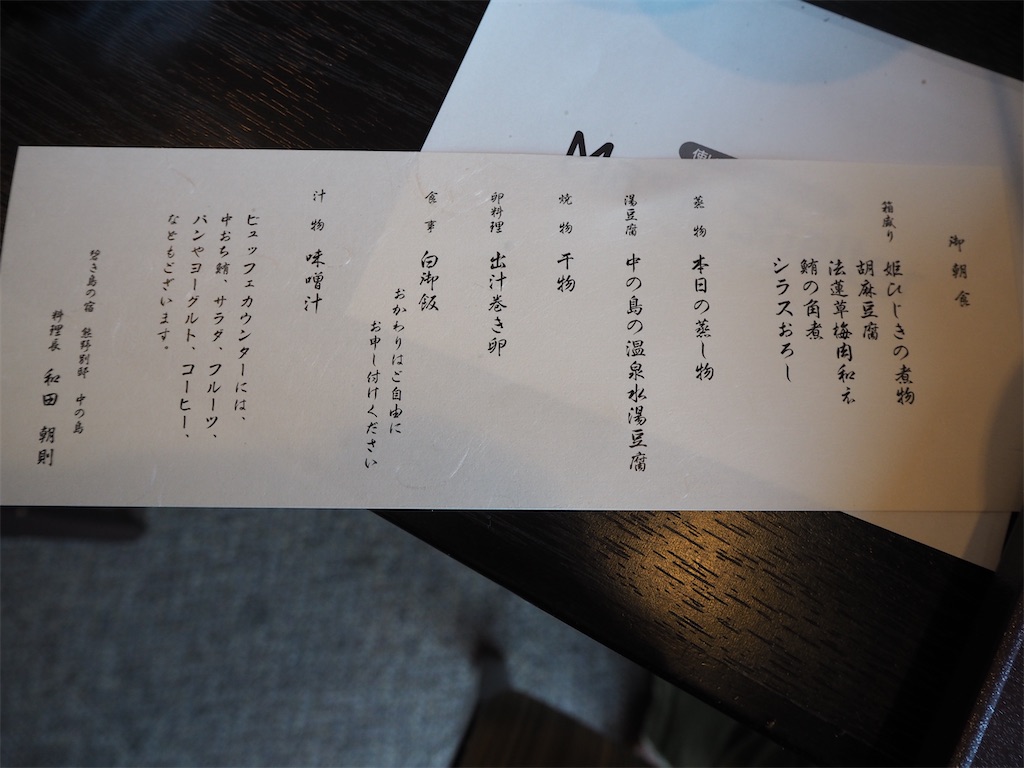 御朝食
箱盛り 姫ひじきの煮物
胡麻豆腐
法蓮草梅肉和え
鮪の角煮
シラスおろし
蒸物 本日の蒸し物
湯豆腐 中の島の温泉水湯豆腐
焼物 干物
卵料理 出汁巻き卵
食事 白御飯
おかわりはご自由に
お申し付けください
汁物 味噌汁
ビュッフェカウンターには、
中おち鮪、サラダ、フルーツ、
パンやヨーグルト、コーヒー、
などもございます。
碧き島の宿 熊野別邸 中の島
料理長 和田 朝則